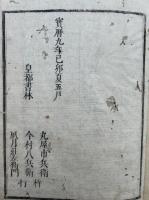 寶暦九年己卯夏五月
皇都書林
丸屋市兵衛
今村八兵衛
風月荘左衛門
行